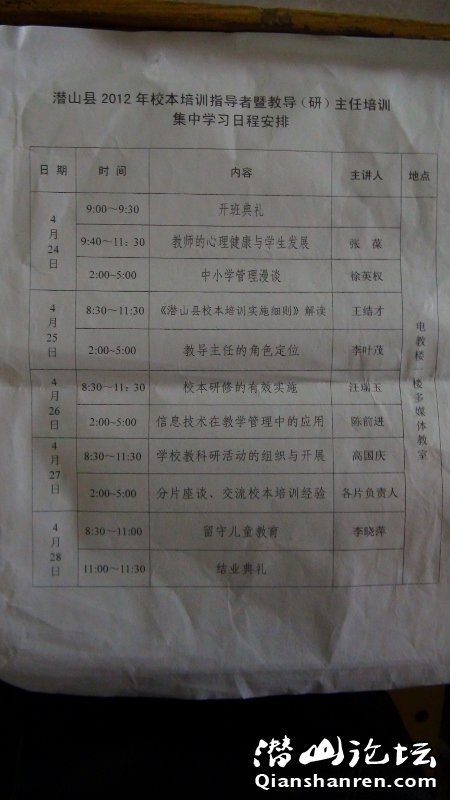 潜山县 2012 年校本培训指导者暨教导（研）主任培训
集中学习日程安排
日 期 时 间 内容 主讲人 地点
4月24日 9:00～9:30 开班典礼
9:40～11：30 教师的心理健康与学生发展 张 葆
2:00～5:00 中小学管理漫谈 徐英权
4月25日 8:30～11:30 《潜山县校本培训实施细则》解读 王结才
2:00～5:00 教导主任的角色定位 李叶茂
4月26日 8:30～11：30 校本研修的有效实施 汪瑞玉
2:00~5:00 信息技术在教学管理中的应用 陈前进
4月27日 8:30～11:30 学校教科研活动的组织与开展 高国庆
2:00～5:00 分片座谈、交流校本培训经验 各片负责人
4月28日 8:30～11:00 留守儿童教育 李晓萍
11:00～11:30 结业典礼
电教楼一楼多媒体教室
潜山论坛
Qianshanren.com